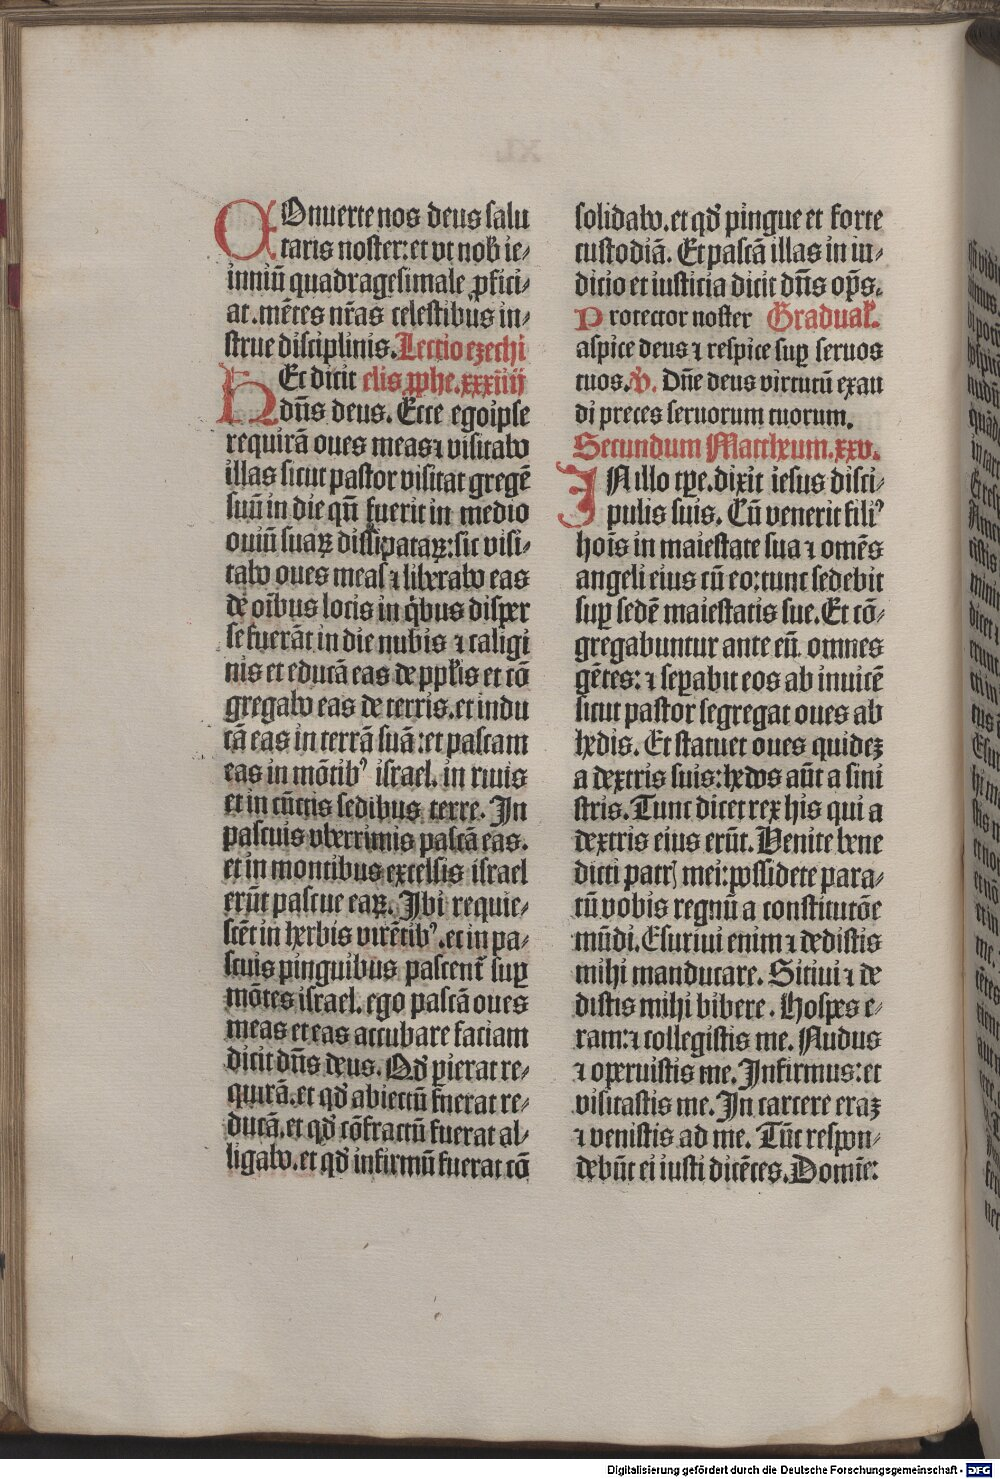 COnuerte nos deus salu
taris noster: et vt nob̄ ie⸗
iuniū quadragesimale ꝓfici⸗
at. mētes nr̄as celestibus in⸗
strue disciplinis. Lectio ezechi
HEc dicit elis ꝓphe. xxxiiij
dn̄s deus. Ecce ego ipse
requirā oues meas ⁊ visitabo
illas sicut pastor visitat gregē
suū in die qn̄ fuerit in medio
ouiū suaꝝ dissipataꝝ: sic visi⸗
tabo oues meas ⁊ liberabo eas
de oībus locis in q̇bus disper
se fuerāt in die nubis ⁊ caligi
nis et educā eas de ppl̄is et cō
gregabo eas de terris. et indu
cā eas in terrā suā: et pascam
eas in mōtibꝰ israel. in riuis
et in cūctis sedibus terre. In
pascuis vberrimis pascā eas.
et in montibus excelsis israel
erūt pascue eaꝝ. Ibi requie⸗
scēt in herbis virētibꝰ. et in pa⸗
scuis pinguibus pascent̄ suꝑ
mōtes israel. ego pascā oues
meas et eas accubare faciam
dicit dn̄s deus. Qd̓ ꝑierat re⸗
quirā. et qd̓ abiectū fuerat re⸗
ducā. et qd̓ cōfractū fuerat al⸗
ligabo. et qd̓ infirmū fuerat cō
solidabo. et qd̓ pingue et forte
custodiā. Et pascā illas in iu⸗
dicio et iusticia dicit dn̄s op̄s.
Protector noster Graduak̄.
aspice deus ⁊ respice suꝑ seruos
tuos. ℣. Dn̄e deus virtutū exau
di preces seruorum tuorum.
Secundum Mattheum. xxv.
IN illo tꝑe. dixit iesus disci⸗
pulis suis. Cū venerit filiꝰ
hoīs in maiestate sua ⁊ omēs
angeli eius cū eo: tunc sedebit
suꝑ sedē maiestatis sue. Et cō⸗
gregabuntur ante eū omnes
gētes: ⁊ seꝑabit eos ab inuicē
sicut pastor segregat oues ab
hedis. Et statuet oues quideꝫ
a dextris suis: hedos aūt a sini
stris. Tunc dicet rex his qui a
dextris eius erūt. Venite bene
dicti patrꝭ mei: possidete para⸗
tū vobis regnū a constitutōe
mūdi. Esuriui enim ⁊ dedistis
mihi manducare. Sitiui ⁊ de
distis mihi bibere. Hospes e⸗
ram: ⁊ collegistis me. Nudus
⁊ operuistis me. Infirmus: et
visitastis me. In carcere eraꝫ
⁊ venistis ad me. Tūc respon⸗
debūt ei iusti dicētes. Domīe:
Digitalisierung gefördert durch die Deutsche Forschungsgemeinschaft - DFG